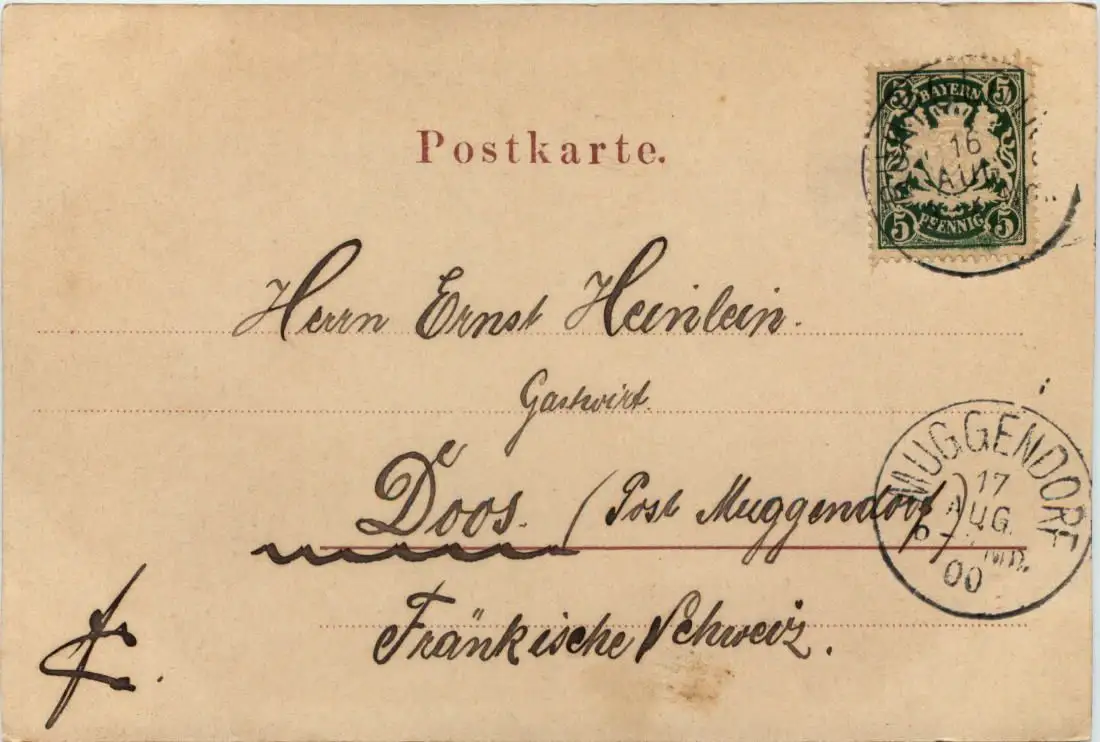 Postkarte.
5 BAYERN 5
5 PFENNIG 5
16
AUG
Herrn Ernst Heinlein.
Gastwirt.
Doos. (Post Muggendorf)
Fränkische Schweiz.
MUGGENDORF
17
AUG.
00